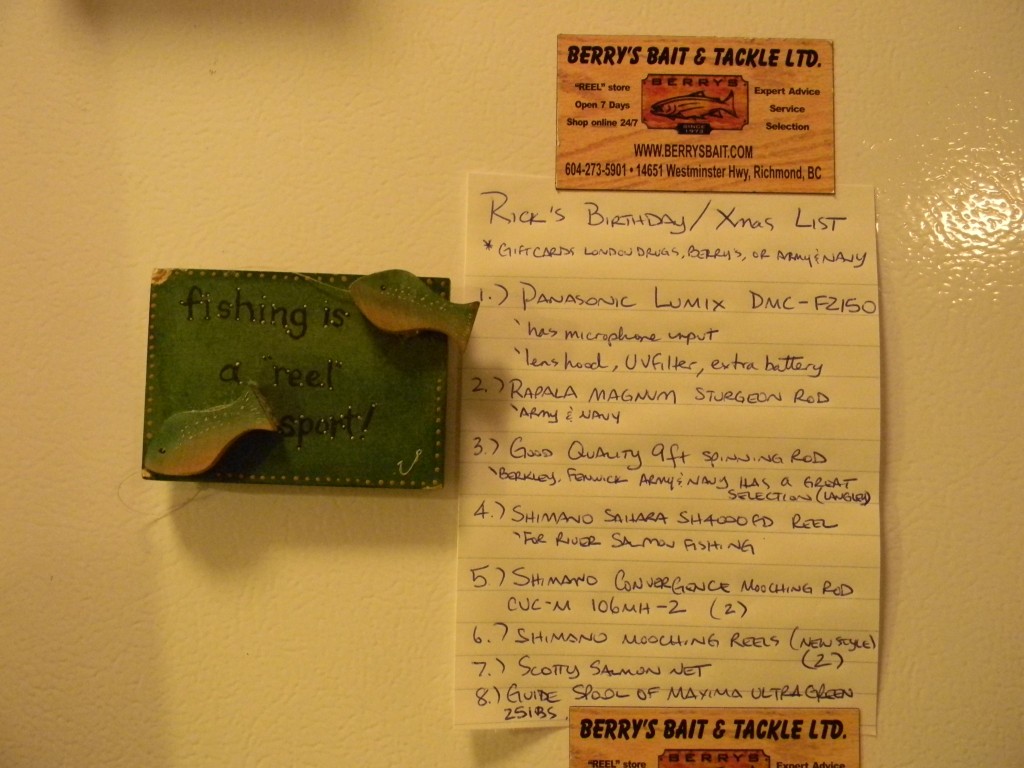 BERRY'S BAIT & TACKLE LTD.
"REEL" store
Open 7 Days
Shop online 24/7
BERRYS
SINCE
Expert Advice
Service
Selection
WWW.BERRYSBAIT.COM
604-273-5901 • 14651 Westminster Hwy, Richmond, BC
fishing is
a "reel"
sport!
RICK'S BIRTHDAY/XMAS LIST
* GIFTCARDS LONDON DRUGS, BERRY'S, OR ARMY & NAVY
1.) PANASONIC LUMIX DMC-FZ150
'has microphone input
'lens hood, UV Filter, extra battery
2.) RAPALA MAGNUM STURGEON ROD
'ARMY & NAVY
3.) GOOD QUALITY 9ft SPINNING ROD
'BERKLEY, FENWICK ARMY & NAVY HAS A GREAT
SELECTION (LANGLEY)
4.) SHIMANO SAHARA SH4000FD REEL
'FOR RIVER SALMON FISHING
5) SHIMANO CONVERGENCE MOOCHING ROD
CVC-M 106MH-2 (2)
6.) SHIMANO MOOCHING REELS (NEW STYLE)
(2)
7.) SCOTTY SALMON NET
8.) GUIDE SPOOL OF MAXIMA ULTRAGREEN
25lBS.
BERRY'S BAIT & TACKLE LTD.
"REEL" store
BERRYS
Expert Advice